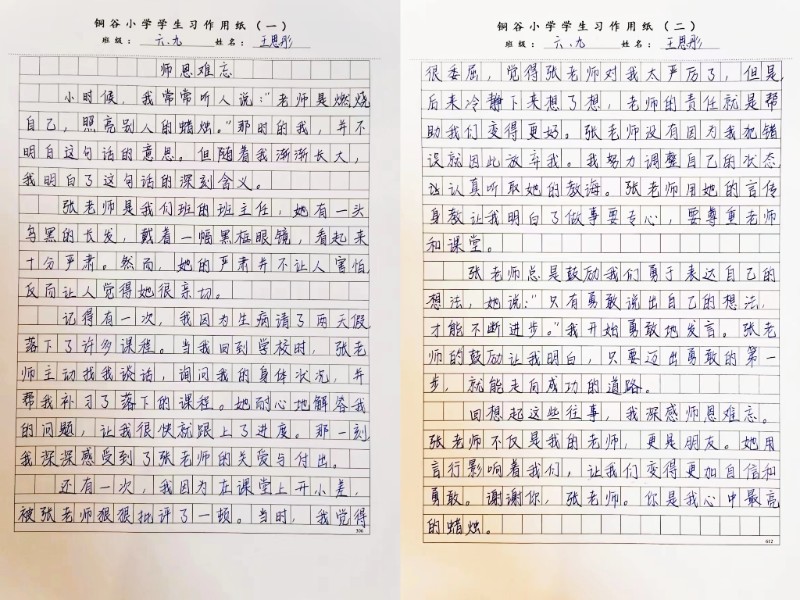 铜谷小学学生习作用纸（一）
班级：六、九 姓名：王思彤
师恩难忘
小时候，我常常听人说：“老师是燃烧
自己，照亮别人的蜡烛。”那时的我，并不
明白这句话的意思。但随着我渐渐长大，
我明白了这句话的深刻含义。
张老师是我们班的班主任，她有一头
乌黑的长发，戴着一幅黑框眼镜，看起来
十分严肃。然而，她的严肃并不让人害怕，
反而让人觉得她很亲切。
记得有一次，我因为生病请了两天假，
落下了许多课程。当我回到学校时，张老
师主动找我谈话，询问我的身体状况，并
帮我补习了落下的课程。她耐心地解答我
的问题，让我很快就跟上了进度。那一刻
我深深感受到了张老师的关爱与付出。
还有一次，我因为在课堂上开小差，
被张老师狠狠批评了一顿。当时，我觉得
306
铜谷小学学生习作用纸（二）
班级：六、九 姓名：王思彤
很委屈，觉得张老师对我太严厉了，但是，
后来冷静下来想了想，老师的责任就是帮
助我们变得更好。张老师没有因为我犯错
误就因此放弃我。我努力调整自己的状态，
认真听取她的教诲。张老师用她的言传
身教让我明白了做事要专心，要尊重老师
和课堂。
张老师总是鼓励我们勇于表达自己的
想法，她说：“只有勇敢说出自己的想法，
才能不断进步。”我开始勇敢地发言。张老
师的鼓励让我明白，只要迈出勇敢的第一
步，就能走向成功的道路。
回想起这些往事，我深感师恩难忘。
张老师不仅是我的老师，更是朋友。她用
言行影响着我们，让我们变得更加自信和
勇敢。谢谢你，张老师。你是我心中最亮
的蜡烛。
612